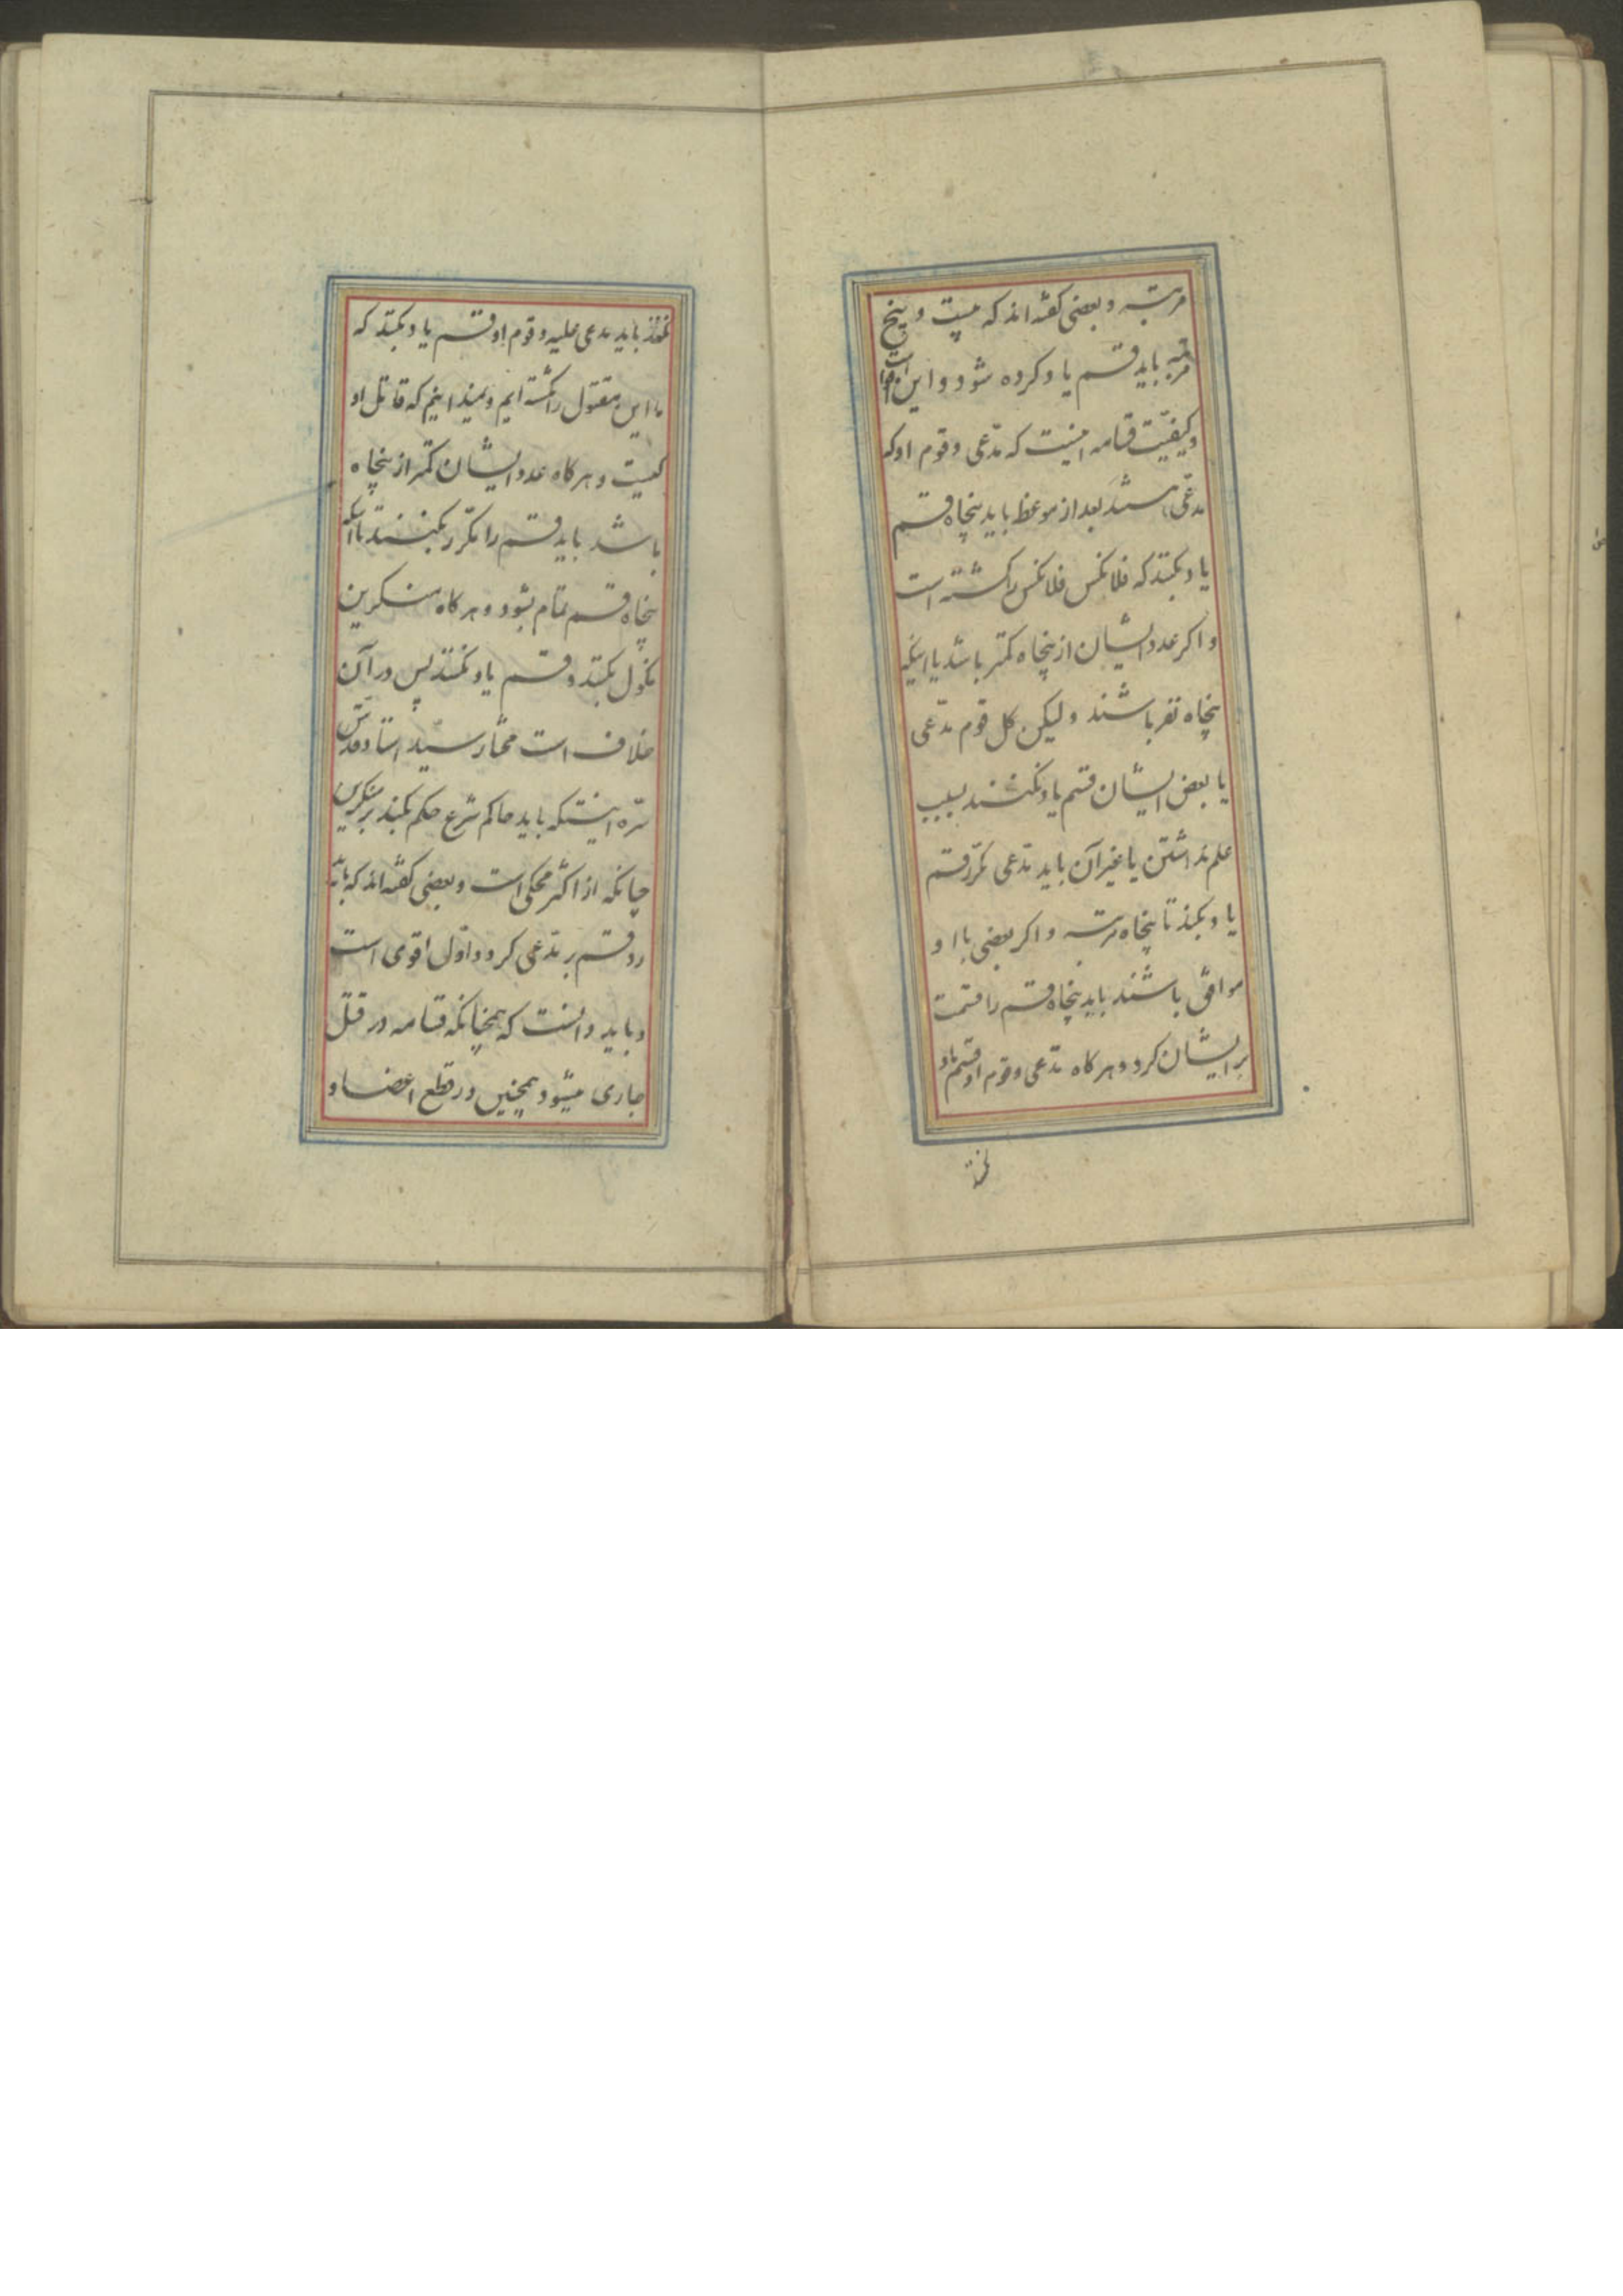 مرتبه و بعضی کفته اند که بیست و پنج
مرتبه باید قسم یاد کرده شود و این اقوا است
و کیفیت قسامه اینست که مدّعی و قوم او که
مدعی هستند بعد از موعظه باید پنجاه قسم
یاد بکنند که فلانکس فلانکس را کشته است
و اکر عدد ایشان از پنجاه کمتر باشد یا اینکه
پنجاه نفر باشند و لیکن کل قوم مدّعی
یا بعض ایشان قسم یاد نکنند بسبب
علم نداشتن یا غیر آن باید مدّعی مکرّر قسم
یاد بکند تا پنجاه مرتبه و اکر بعضی با او
موافق باشند باید پنجاه قسم را قسمت
بر ایشان کرد و هر کاه مدّعی و قوم او قسم یاد
نکنند
نکنند باید مدعی علیه و قوم او قسم یاد بکنند که
ما این مقتول را نکشته ایم و نمیدانیم که قاتل او
کیست و هر کاه عدد ایشان کمتر از پنجاه
باشد باید قسم را مکرر بکنند تا اینکه
پنجاه قسم تمام بشود و هر کاه منکرین
نکول بکنند و قسم یاد نکنند پس در آن
خلاف است مختار سید استاد قدّس
سرّه اینستکه باید حاکم شرع حکم بکند بر منکرین
چنانکه از اکثر محکی است و بعضی کفته اند که باید
رد قسم بر مدّعی کرد و اوّل اقوی است
و باید دانست که همچنانکه قسامه در قتل
جاری میشود همچنین در قطع اعضا و